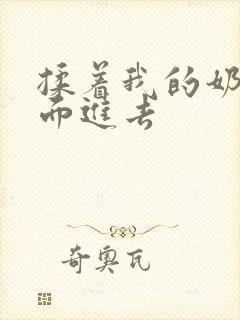 揉着我的奶
而進去
奇奥瓦